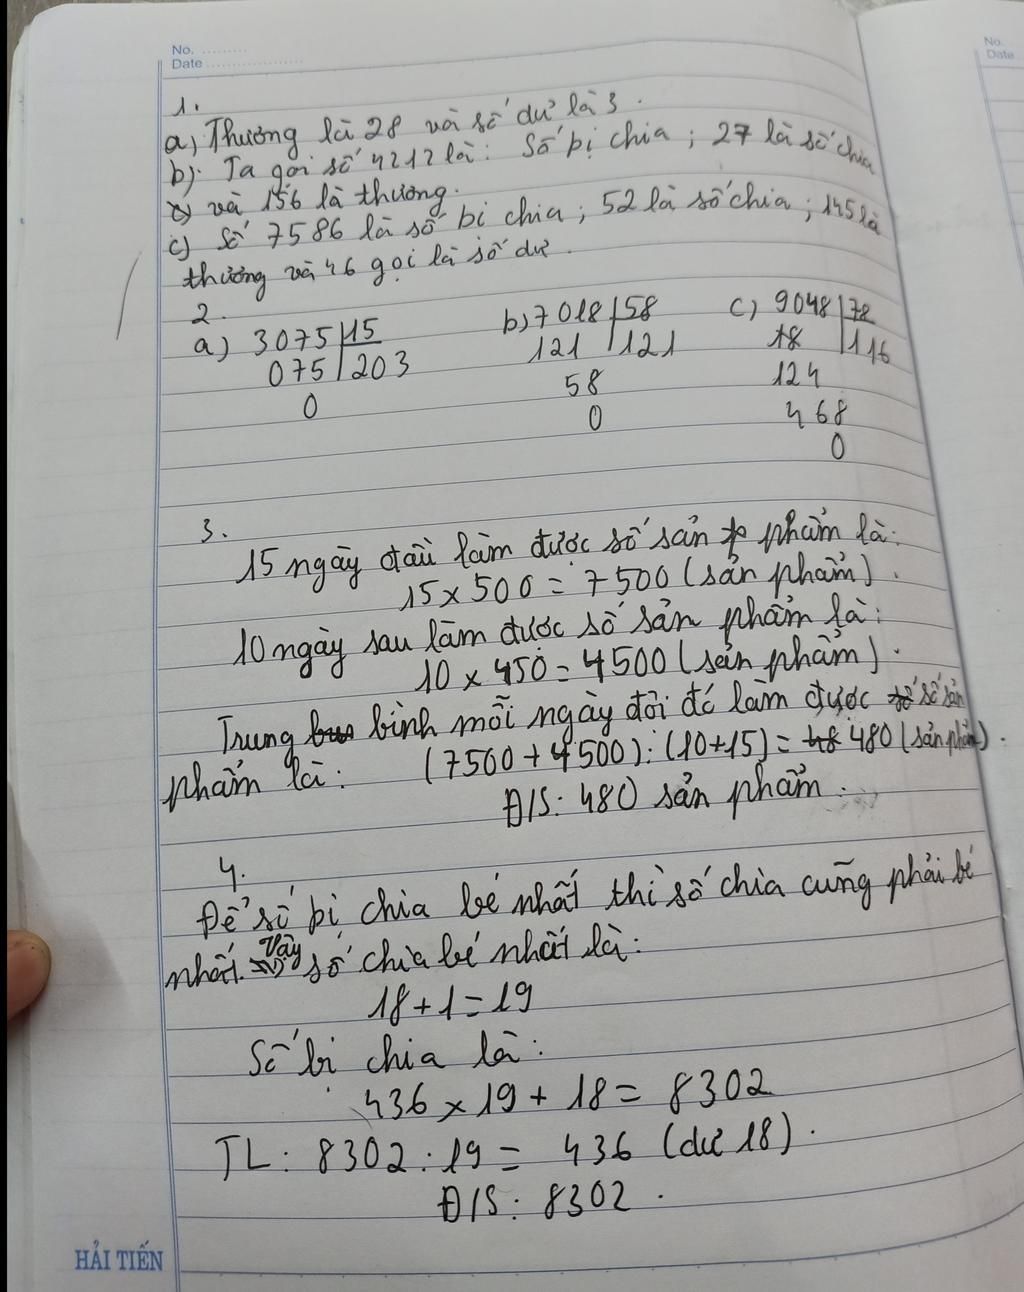 No. ..........
Date ....................
No.
Date
1.
a) Thương là 28 và số dư là 3.
b) Ta gọi số 4212 là: Số bị chia; 27 là số chia
và 156 là thương.
c) Số 7586 là số bị chia; 52 là số chia; 145 là
thương và 46 gọi là số dư.
2.
a) 3075 | 15 b) 7018 | 58 c) 9048 | 78
075 | 203 121 | 121 18 | 116
0 58 124
0 468
0
3.
15 ngày đầu làm được số sản phẩm là:
15 x 500 = 7500 (sản phẩm).
10 ngày sau làm được số sản phẩm là:
10 x 450 = 4500 (sản phẩm).
Trung bình mỗi ngày đội đó làm được số sản
phẩm là: (7500 + 4500) : (10+15) = 480 (sản phẩm).
Đ/S: 480 sản phẩm.
4.
Để số bị chia bé nhất thì số chia cũng phải bé
nhất. Vậy số chia bé nhất là:
18 + 1 = 19
Số bị chia là:
436 x 19 + 18 = 8302
TL: 8302 : 19 = 436 (dư 18).
Đ/S: 8302.
HẢI TIẾN